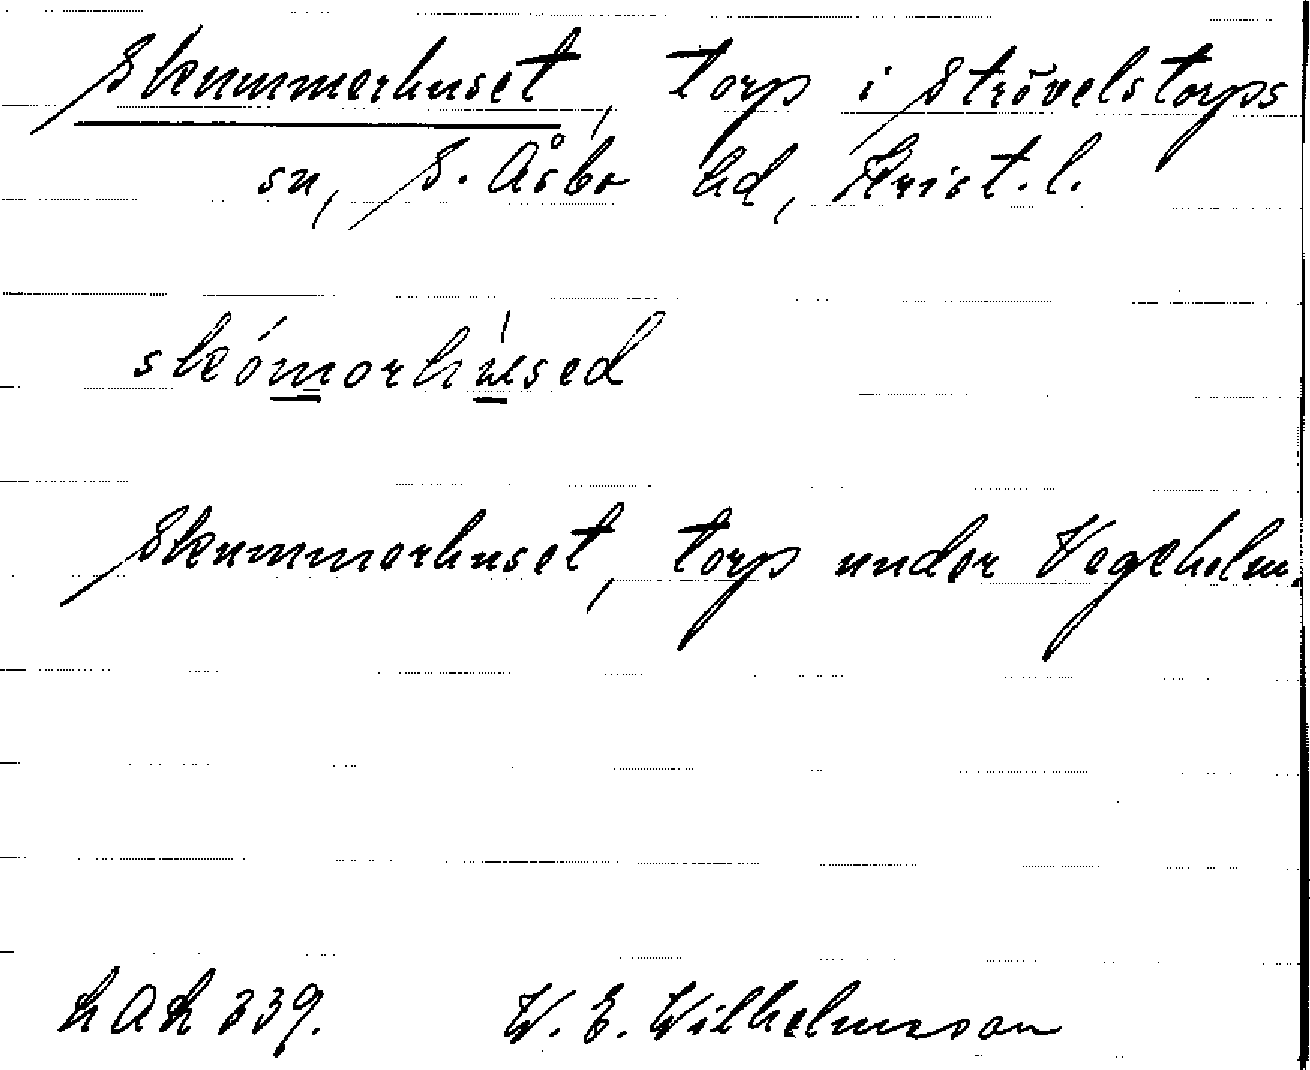 Skummerhuset, torp i Strövelstorps
sn, S. Åsbo hd, Krist. l.
skómorhúsed
Skummerhuset, torp under Vegeholm.
W. E. Wilhelmsson